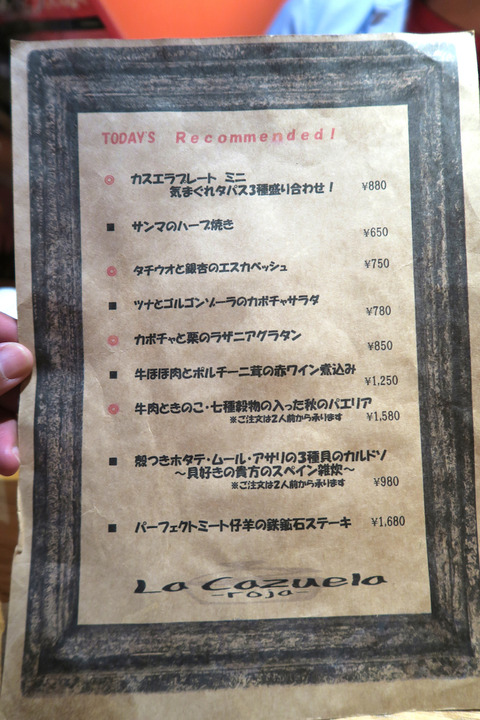 TODAY'S Recommended!
◎ カスエラプレート ミニ
気まぐれタパス3種盛り合わせ! ¥880
■ サンマのハーブ焼き ¥650
◎ タチウオと銀杏のエスカベッシュ ¥750
■ ツナとゴルゴンゾーラのカボチャサラダ ¥780
◎ カボチャと栗のラザニアグラタン ¥850
■ 牛ほほ肉とポルチーニ茸の赤ワイン煮込み ¥1,250
◎ 牛肉ときのこ・七種穀物の入った秋のパエリア ¥1,580
※ご注文は2人前から承ります
■ 殻つきホタテ・ムール・アサリの3種貝のカルドソ
〜貝好きの貴方のスペイン雑炊〜
※ご注文は2人前から承ります ¥980
■ パーフェクトミート仔羊の鉄鉱石ステーキ ¥1,680
La Cazuela
-roja-